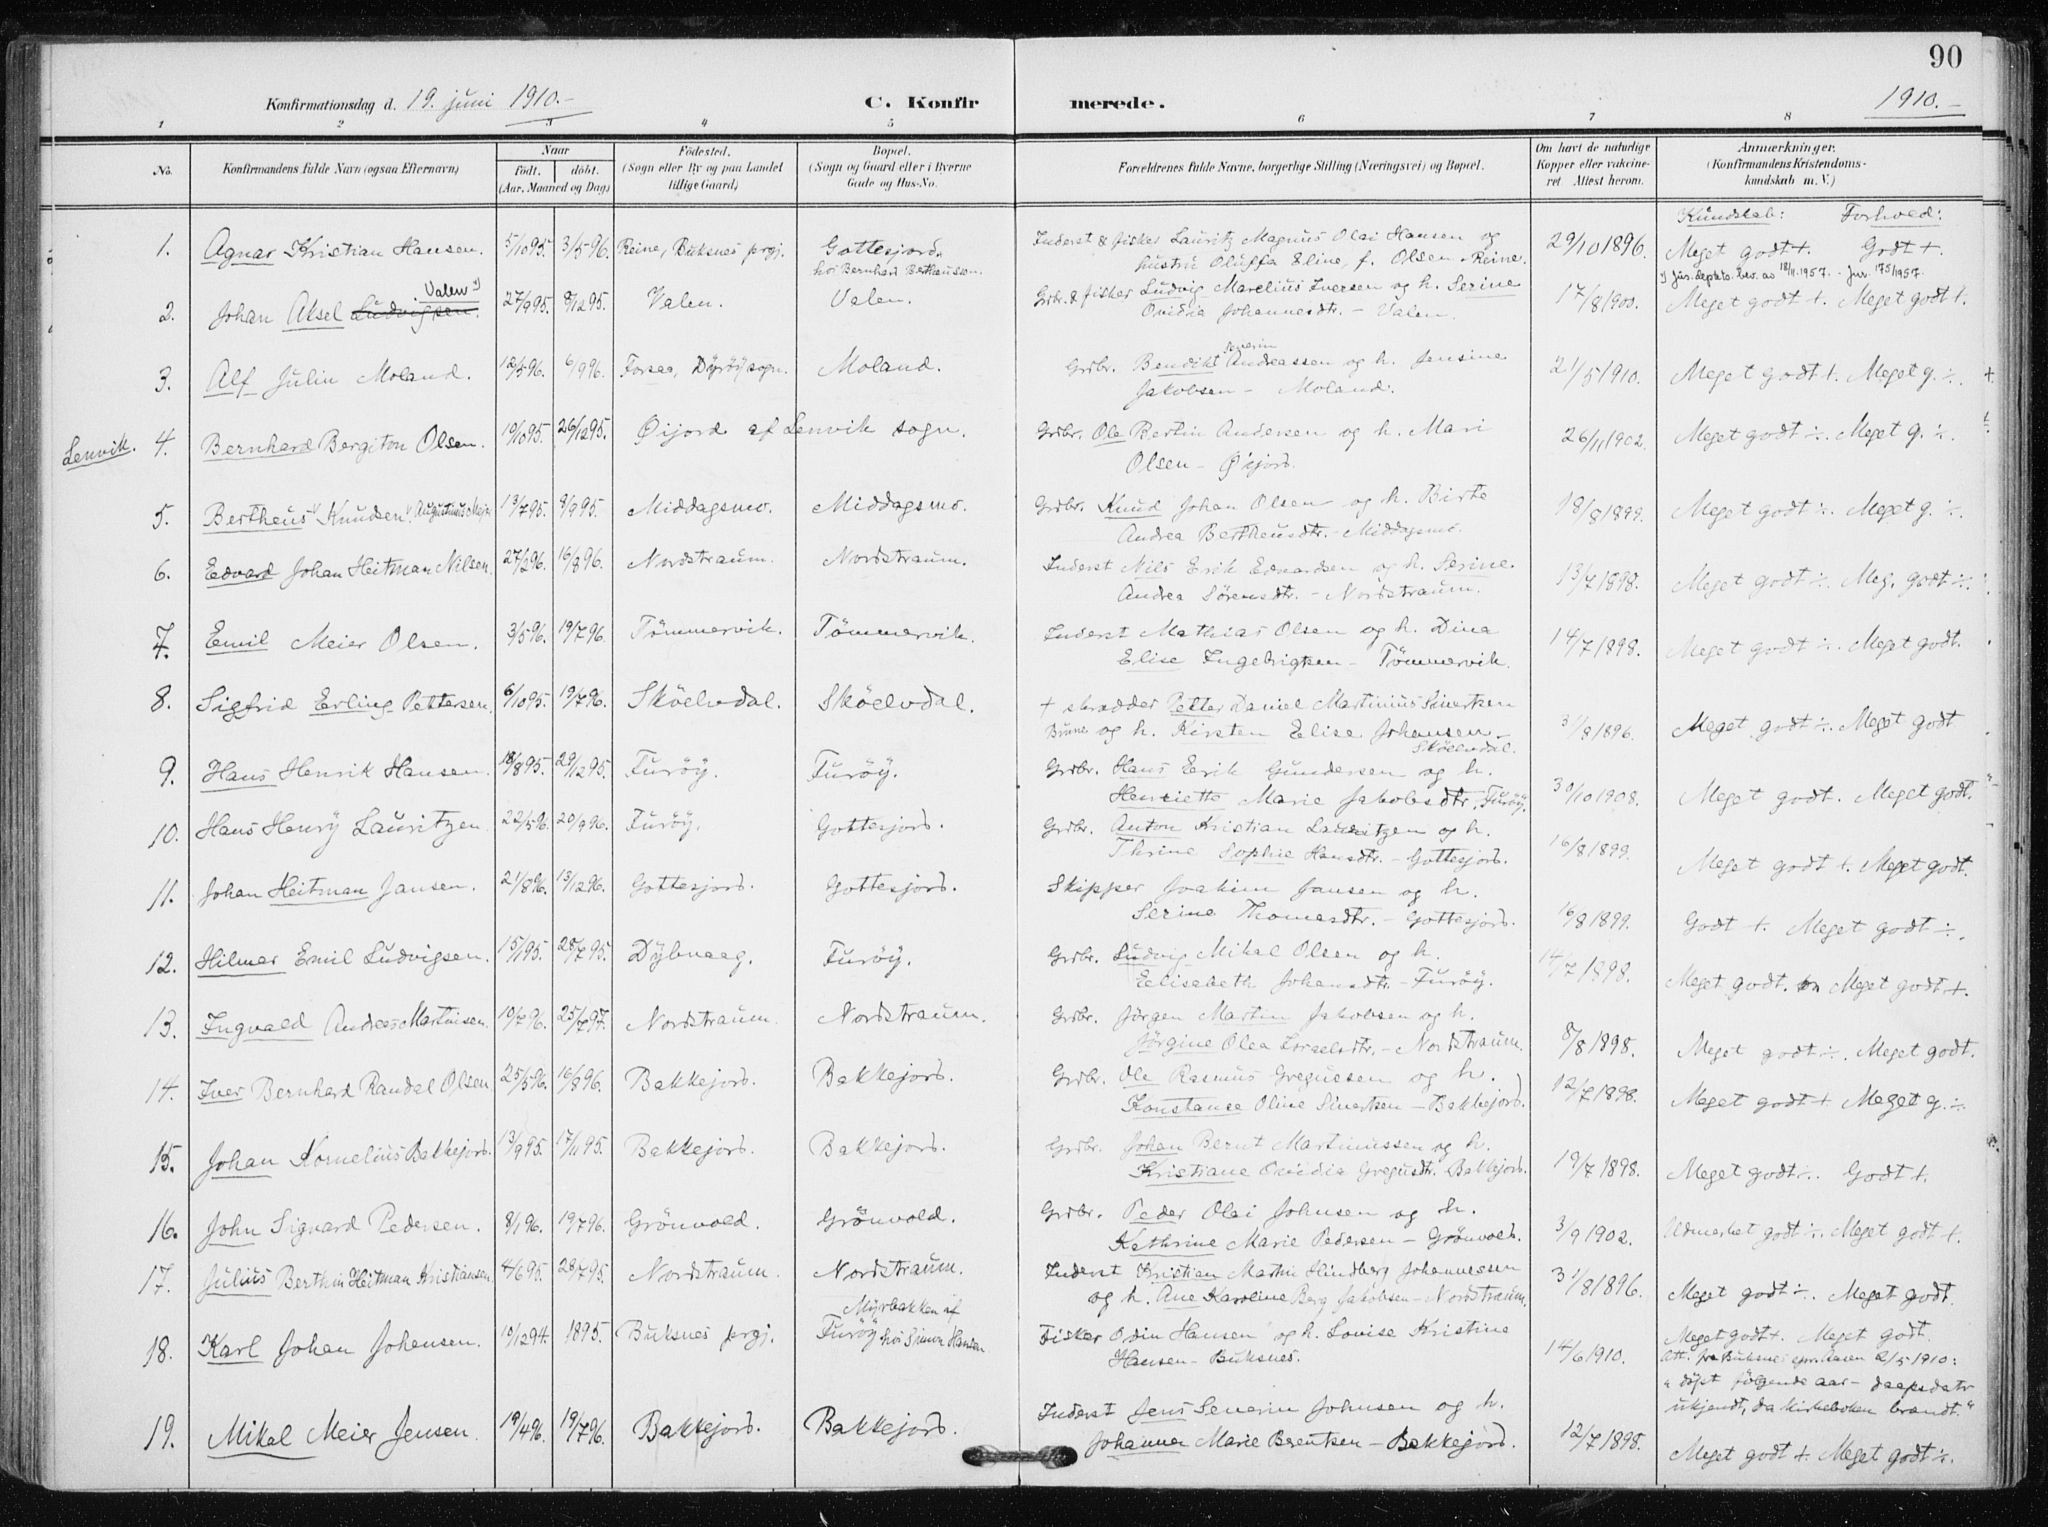 90
Konfirmationsdag d. 19. juni 1910.-
C. Konfirmerede.
1910.-
1 2 3 4 5 6 7 8
No. Konfirmandens fulde Navn (ogsaa Efternavn)
Naar født. døbt. (Aar, Maaned og Dag)
Fødested. (Sogn eller By og paa Landet tillige Gaard)
Bopæl. (Sogn og Gaard eller i Byerne Gade og Hus-No.
Forældrenes fulde Navne, borgerlige Stilling (Næringsvei) og Bopæl.
Om havt de naturlige Kopper eller vakcineret. Attest herom.
Anmærkninger. (Konfirmandens Kristendomskundskab m. V.)
Kundskab: Forhold:
1. Agnar Kristian Hansen. 5/10 95. 3/5 96. Reine, Buksnes prgj. Gottesjord. Inderst & fisker Lauritz Magnus Olai Hansen og 29/10 1896. Meget godt +. Godt +.
hos Bernhard Berthausen. hustru Oluffa Eline, f. Olsen - Reine.
1) Jus. deptets. bev. av 18/11 1957. - Jnr. 175/1957.
Valen 1)
2. Johan Aksel Ludvigsen. 27/9 95. 8/12 95. Valen. Valen. Grbr. & fisker Ludvig Marelius Iversen og h. Serine 17/8 1900. Meget godt +. Meget godt +.
Ovidia Johannesdtr. - Valen.
3. Alf Julin Moland. 12/5 96. 6/9 96. Forsaa, Dyröy sogn. Moland. Grdbr. Bendikt Severin Andreassen og h. Jensine 21/5 1910. Meget godt +. Meget g. ÷.
Jakobsen - Moland.
Lenvik. 4. Bernhard Bergiton Olsen. 19/10 95. 26/12 95. Öijord af Lenvik sogn. Grdbr. Ole Bertin Andersen og h. Mari 26/11 1902. Meget godt ÷. Meget g. ÷.
Olsen - Öijord.
5. Bertheus Knudsen. Augustinus Meyer 13/7 95. 8/9 95. Middagsmo. Middagsmo. Grdbr. Knud Johan Olsen og h. Birte 18/8 1899. Meget godt ÷. Meget g. ÷.
Andrea Bertheusdtr. - Middagsmo.
6. Edvard Johan Heitman Nilsen. 27/2 96. 16/8 96. Nordstraum. Nordstraum. Inderst Nils Erik Edvardsen og h. Serine 13/7 1898. Meget godt ÷. Meg. godt ÷.
Andrea Sörensdtr. - Nordstraum.
7. Emil Meier Olsen. 3/5 96. 19/7 96. Tömmervik. Tömmervik. Inderst Mathias Olsen og h. Dina 14/7 1898. Meget godt ÷. Meget godt.
Elise Ingebrigtsen - Tömmervik.
8. Sigfrid Erling Pettersen. 6/10 95. 19/7 96. Sköelvdal. Sköelvdal. + skrædder Petter Daniel Martinius Sivertsen 31/8 1896. Meget godt ÷. Meget godt
Bünne og h. Kirsten Elise Johansen - Sköelvdal.
9. Hans Henrik Hansen. 18/8 95. 29/12 95. Furöy. Furöy. Grdbr. Hans Erik Gundersen og h. 30/10 1908. Meget godt. Meget godt.
Henriette Marie Jakobsdtr. Furöy.
10. Hans Henry Lauritzen 22/5 96. 20/9 96. Furöy. Gottesjord. Grdbr. Anton Kristian Lauritzen og h. 16/8 1899. Meget godt +. Meget godt.
Thrine Sophie Hansdtr. - Gottesjord.
11. Johan Heitman Jansen. 21/8 96. 13/12 96. Gottesjord. Gottesjord. Skipper Joakim Jansen og h. 16/8 1899. Godt +. Meget godt ÷.
Serine Thomasdtr. - Gottesjord.
12. Hilmar Emil Ludvigsen. 15/1 95. 28/7 95. Dybvaag. Furöy. Grdbr. Ludvig Mikal Olsen og h. 14/7 1898. Meget godt. Meget godt +.
Elisabeth Johansdtr. - Furöy.
13. Ingvald Andreas Martinsen. 19/7 96. 25/7 97. Nordstraum. Nordstraum. Grdbr. Jörgen Martin Jakobsen og h. 8/8 1898. Meget godt ÷. Meget godt.
Jörgine Olea Israelsdtr. - Nordstraum.
14. Iver Bernhard Randal Olsen 25/5 96. 16/8 96. Bakkejord. Bakkejord. Grdbr. Ole Rasmus Gregusen og h. 12/7 1898. Meget godt +. Meget g. ÷.
Konstanse Oline Sivertsen - Bakkejord.
15. Johan Kornelius Bakkejord. 13/9 95. 17/11 95. Bakkejord. Bakkejord. Grdbr. Johan Bernt Martinussen og h. 19/7 1898. Meget godt ÷. Godt +.
Kristiane Ovidia Gregusdtr. Bakkejord.
16. John Sigvard Pedersen. 8/1 96. 19/7 96. Grönvold. Grönvold. Grdbr. Peder Olai Johnsen og h. 3/9 1902. Udmerket godt ÷. Meget godt +.
Kathrine Marie Pedersen - Grönvold.
17. Julius Berthin Heitman Kristiansen 4/6 95. 28/7 95. Nordstraum. Nordstraum. Inderst Kristian Martin Lindberg Johannessen 31/8 1896. Meget godt ÷. Meget godt.
og h. Ane Karoline Berg Jakobsen - Nordstraum.
18. Karl Johan Johansen. 19/12 94. 1895. Buksnes prgj. Myrbakken af Furöy hos Simon Hansen Fisker Odin Hansen og h. Lovise Kristine 14/6 1910. Meget godt +. Meget godt.
Hansen - Buksnes. Att. fra Buksnes spr. Aasen 2/5 1910:
"döpt följende aar - daapsdatr
ukjendt, da kirkeboken brændt."
19. Mikal Meier Jensen. 19/4 96. 19/7 96. Bakkejord. Bakkejord. Inderst Jens Severin Johnsen og h. 12/7 1898. Meget godt +. Meget godt ÷.
Johanna Marie Berntsen - Bakkejord.